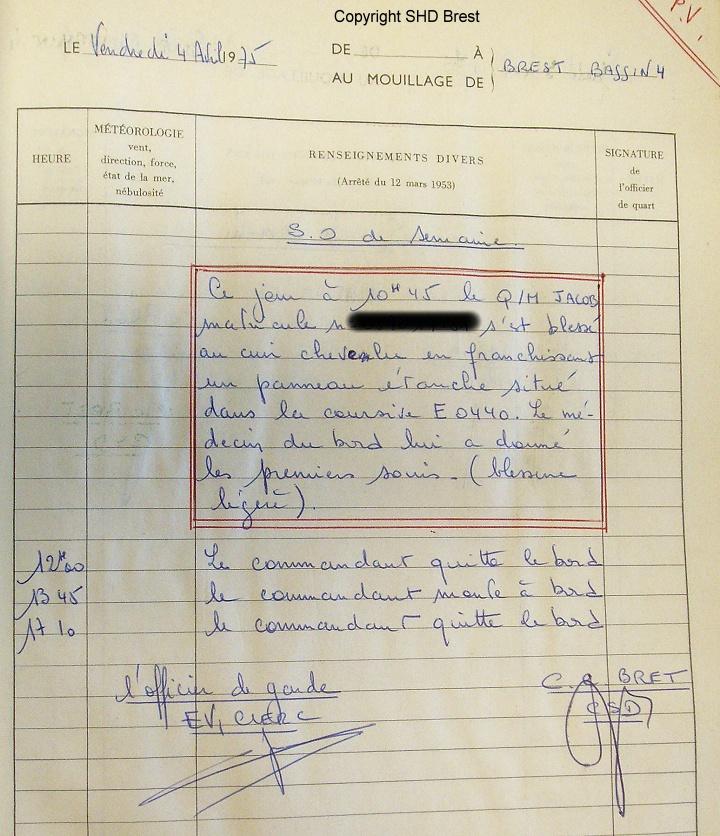 Copyright SHD Brest
P.V.
LE Vendredi 4 Avril 1975 DE À
AU MOUILLAGE DE BREST BASSIN 4
HEURE
MÉTÉOROLOGIE
vent,
direction, force,
état de la mer,
nébulosité
RENSEIGNEMENTS DIVERS
(Arrêté du 12 mars 1953)
SIGNATURE
de
l'officier
de quart
S.O de semaine.
Ce jour à 10H45 le Q/M JACOB
matricule n s'est blessé
au cuir chevelu en franchissant
un panneau étanche situé
dans la coursive E 0440. Le mé-
decin du bord lui a donné
les premiers soins. (blessure
légère).
12H00 Le commandant quitte le bord
13 45 le commandant monte à bord
17 10 le commandant quitte le bord
l'officier de garde
EV1 CLERC
BRET
CSD